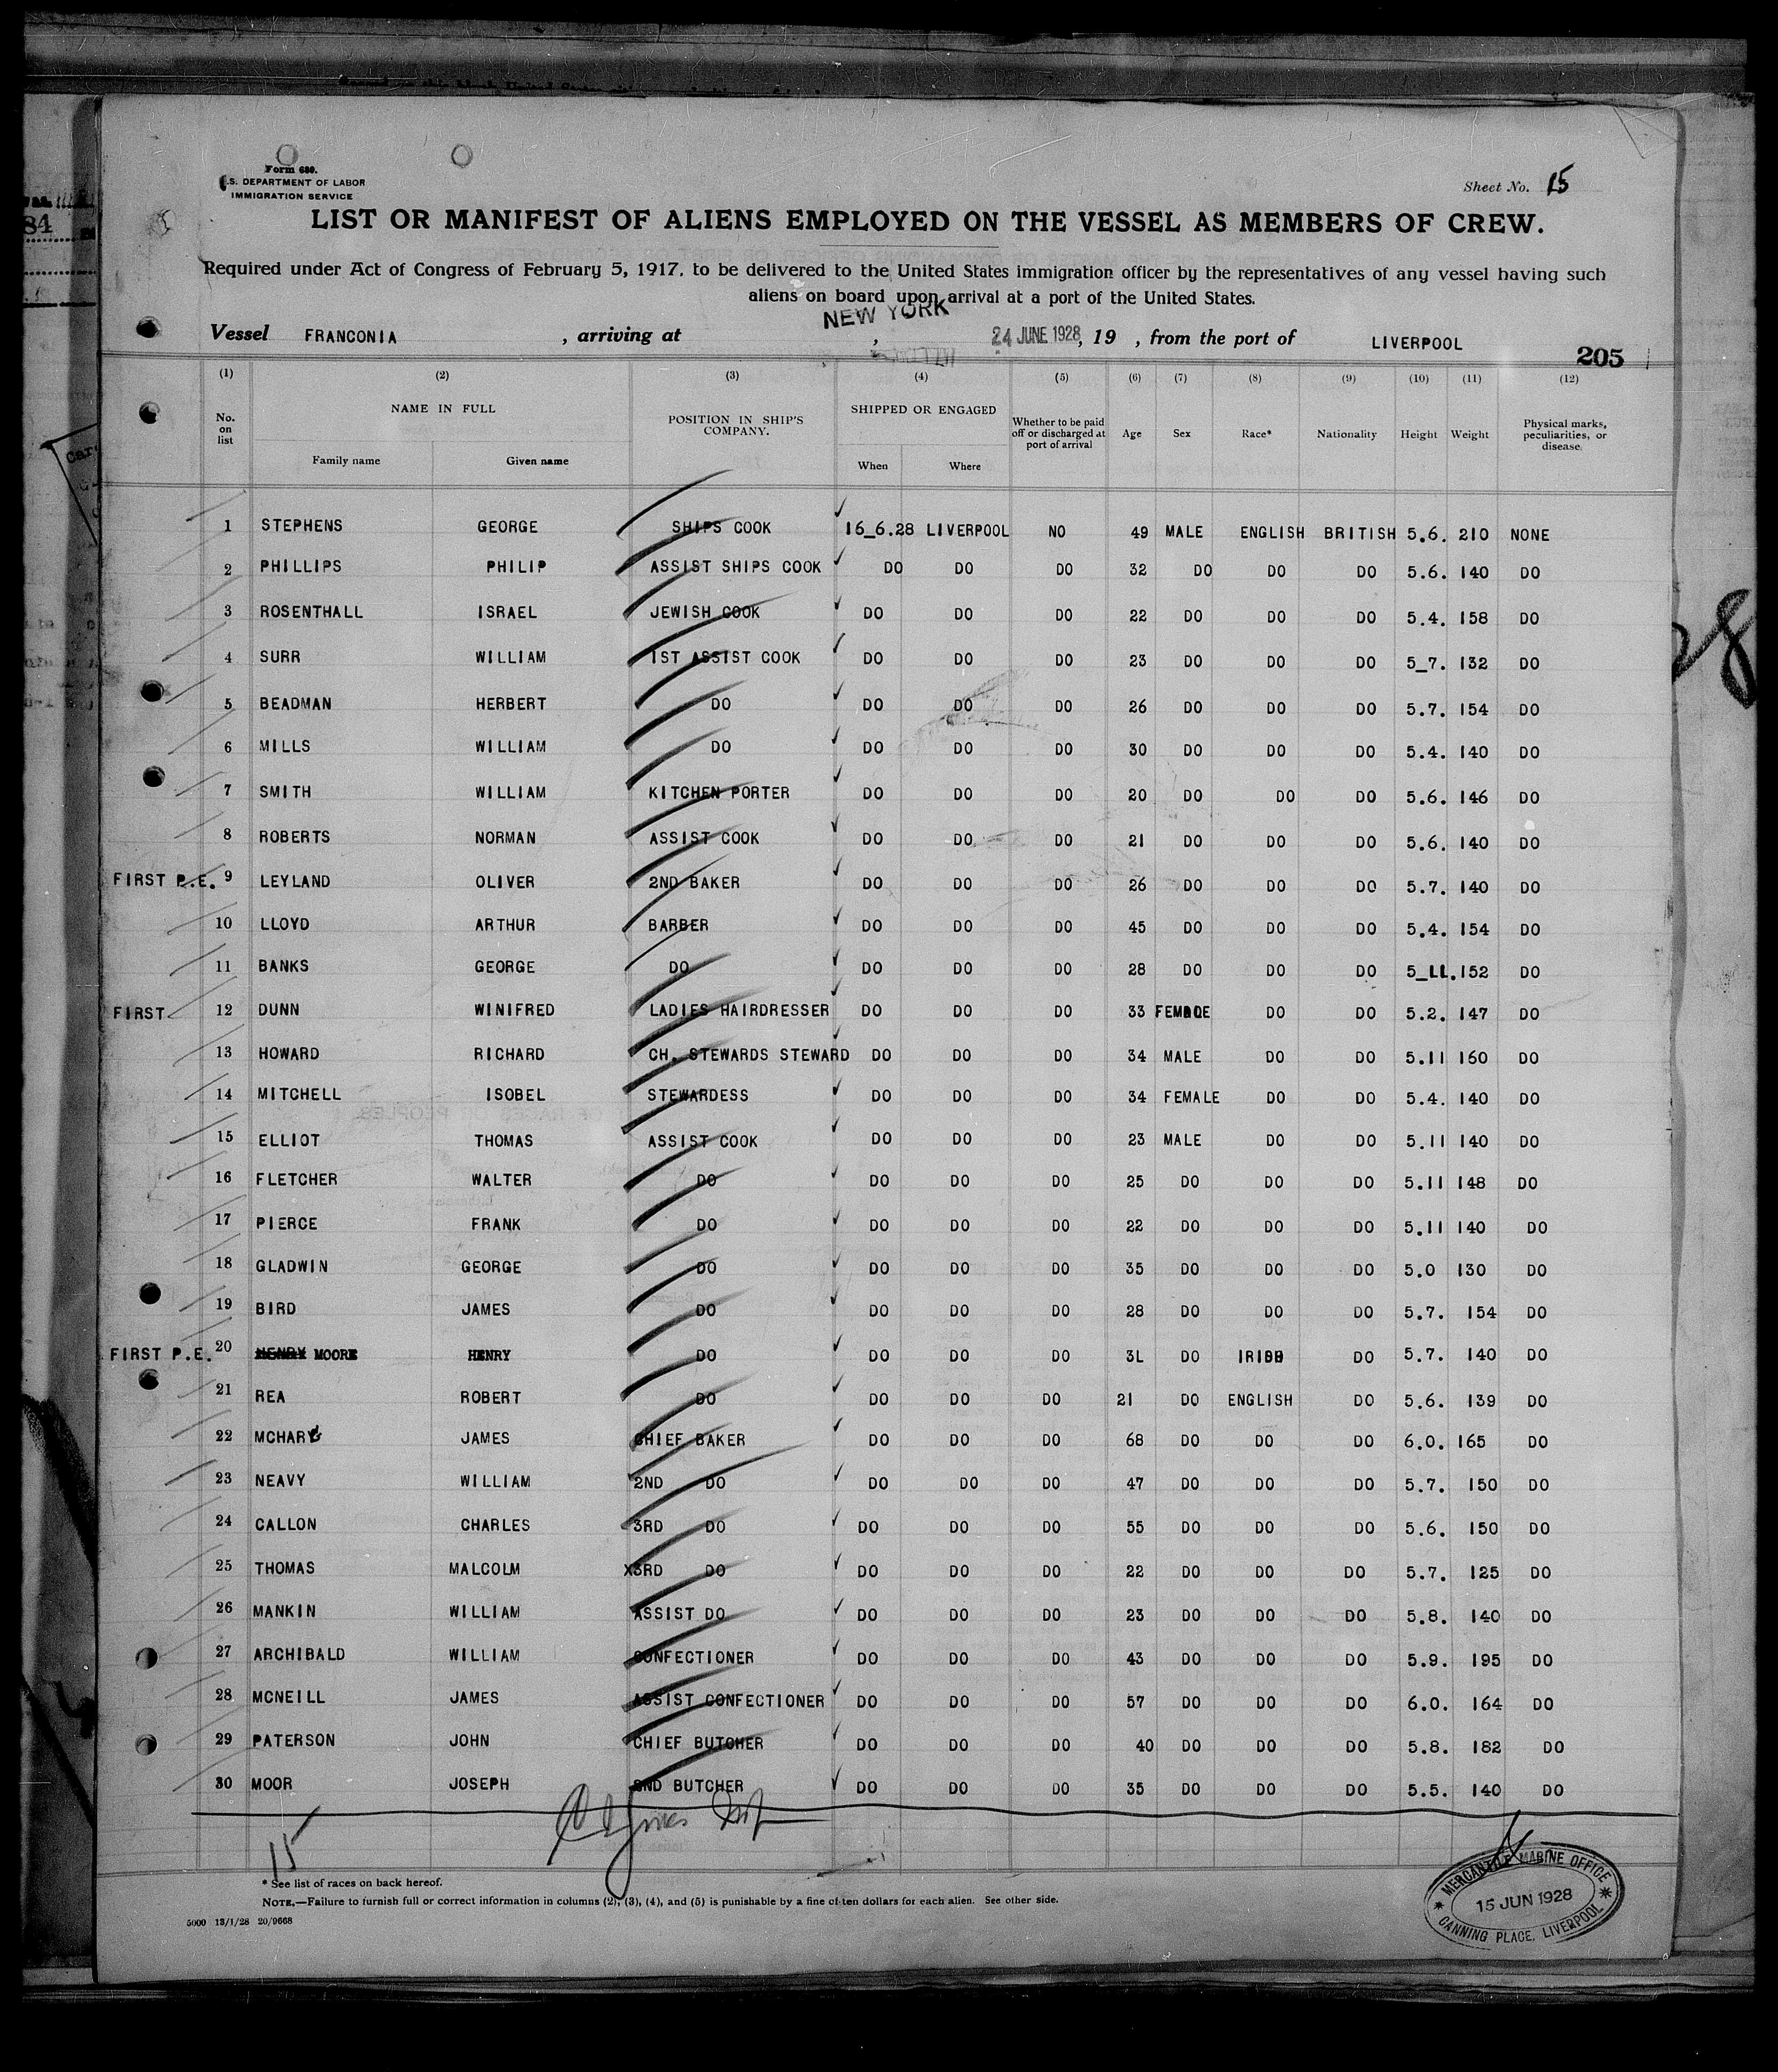 Form 680.
U.S. DEPARTMENT OF LABOR
IMMIGRATION SERVICE
Sheet No. 15
LIST OR MANIFEST OF ALIENS EMPLOYED ON THE VESSEL AS MEMBERS OF CREW.
Required under Act of Congress of February 5, 1917, to be delivered to the United States immigration officer by the representatives of any vessel having such
aliens on board upon arrival at a port of the United States.
Vessel FRANCONIA , arriving at NEW YORK , 24 JUNE 1928, 19 , from the port of LIVERPOOL
205
(1) (2) (3) (4) (5) (6) (7) (8) (9) (10) (11) (12)
No. on list NAME IN FULL Family name Given name POSITION IN SHIP'S COMPANY. SHIPPED OR ENGAGED When Where Whether to be paid off or discharged at port of arrival Age Sex Race* Nationality Height Weight Physical marks, peculiarities, or disease.
1 STEPHENS GEORGE SHIPS COOK 16_6.28 LIVERPOOL NO 49 MALE ENGLISH BRITISH 5.6. 210 NONE
2 PHILLIPS PHILIP ASSIST SHIPS COOK DO DO DO 32 DO DO DO 5.6. 140 DO
3 ROSENTHALL ISRAEL JEWISH COOK DO DO DO 22 DO DO DO 5.4. 158 DO
4 SURR WILLIAM 1ST ASSIST COOK DO DO DO 23 DO DO DO 5_7. 132 DO
5 BEADMAN HERBERT DO DO DO DO 26 DO DO DO 5.7. 154 DO
6 MILLS WILLIAM DO DO DO DO 30 DO DO DO 5.4. 140 DO
7 SMITH WILLIAM KITCHEN PORTER DO DO DO 20 DO DO DO 5.6. 146 DO
8 ROBERTS NORMAN ASSIST COOK DO DO DO 21 DO DO DO 5.6. 140 DO
FIRST P.E. 9 LEYLAND OLIVER 2ND BAKER DO DO DO 26 DO DO DO 5.7. 140 DO
10 LLOYD ARTHUR BARBER DO DO DO 45 DO DO DO 5.4. 154 DO
11 BANKS GEORGE DO DO DO DO 28 DO DO DO 5_11. 152 DO
FIRST 12 DUNN WINIFRED LADIES HAIRDRESSER DO DO DO 33 FEMALE DO DO 5.2. 147 DO
13 HOWARD RICHARD CH. STEWARDS STEWARD DO DO DO 34 MALE DO DO 5.11 160 DO
14 MITCHELL ISOBEL STEWARDESS DO DO DO 34 FEMALE DO DO 5.4. 140 DO
15 ELLIOT THOMAS ASSIST COOK DO DO DO 23 MALE DO DO 5.11 140 DO
16 FLETCHER WALTER DO DO DO DO 25 DO DO DO 5.11 148 DO
17 PIERCE FRANK DO DO DO DO 22 DO DO DO 5.11 140 DO
18 GLADWIN GEORGE DO DO DO DO 35 DO DO DO 5.0 130 DO
19 BIRD JAMES DO DO DO DO 28 DO DO DO 5.7. 154 DO
FIRST P.E. 20 HENRY MOORE HENRY DO DO DO DO 31 DO IRISH DO 5.7. 140 DO
21 REA ROBERT DO DO DO DO 21 DO ENGLISH DO 5.6. 139 DO
22 MCHARG JAMES CHIEF BAKER DO DO DO 68 DO DO DO 6.0. 165 DO
23 NEAVY WILLIAM 2ND DO DO DO DO 47 DO DO DO 5.7. 150 DO
24 CALLON CHARLES 3RD DO DO DO DO 55 DO DO DO 5.6. 150 DO
25 THOMAS MALCOLM X3RD DO DO DO DO 22 DO DO DO 5.7. 125 DO
26 MANKIN WILLIAM ASSIST DO DO DO DO 23 DO DO DO 5.8. 140 DO
27 ARCHIBALD WILLIAM CONFECTIONER DO DO DO 43 DO DO DO 5.9. 195 DO
28 MCNEILL JAMES ASSIST CONFECTIONER DO DO DO 57 DO DO DO 6.0. 164 DO
29 PATERSON JOHN CHIEF BUTCHER DO DO DO 40 DO DO DO 5.8. 182 DO
30 MOOR JOSEPH 2ND BUTCHER DO DO DO 35 DO DO DO 5.5. 140 DO
15
* See list of races on back hereof.
NOTE.—Failure to furnish full or correct information in columns (2), (3), (4), and (5) is punishable by a fine of ten dollars for each alien. See other side.
5000 13/1/28 20/9668
MERCANTILE MARINE OFFICE
15 JUN 1928
CANNING PLACE, LIVERPOOL
28
84